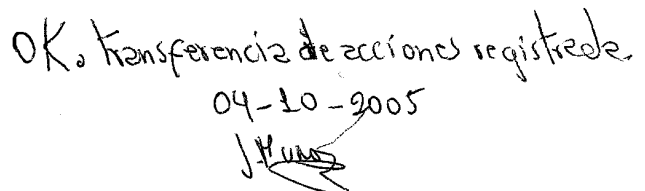 OK. transferencia de acciones registrada.
04-10-2005
J. Muñoz